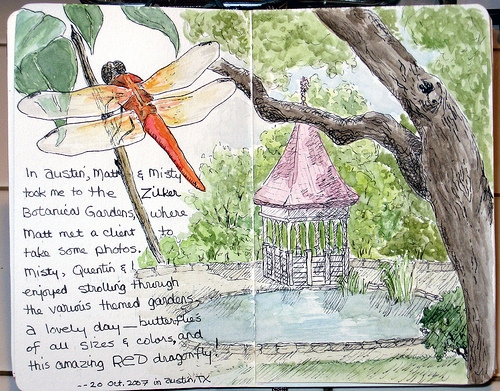 In Austin, Matt & Misty
took me to the Zilker
Botanical Gardens, where
Matt met a client to
take some photos.
Misty, Quentin & I
enjoyed strolling through
the various themed gardens,
a lovely day — butterflies
of all sizes & colors, and
this amazing RED dragonfly!
--20 Oct. 2007 in Austin, TX